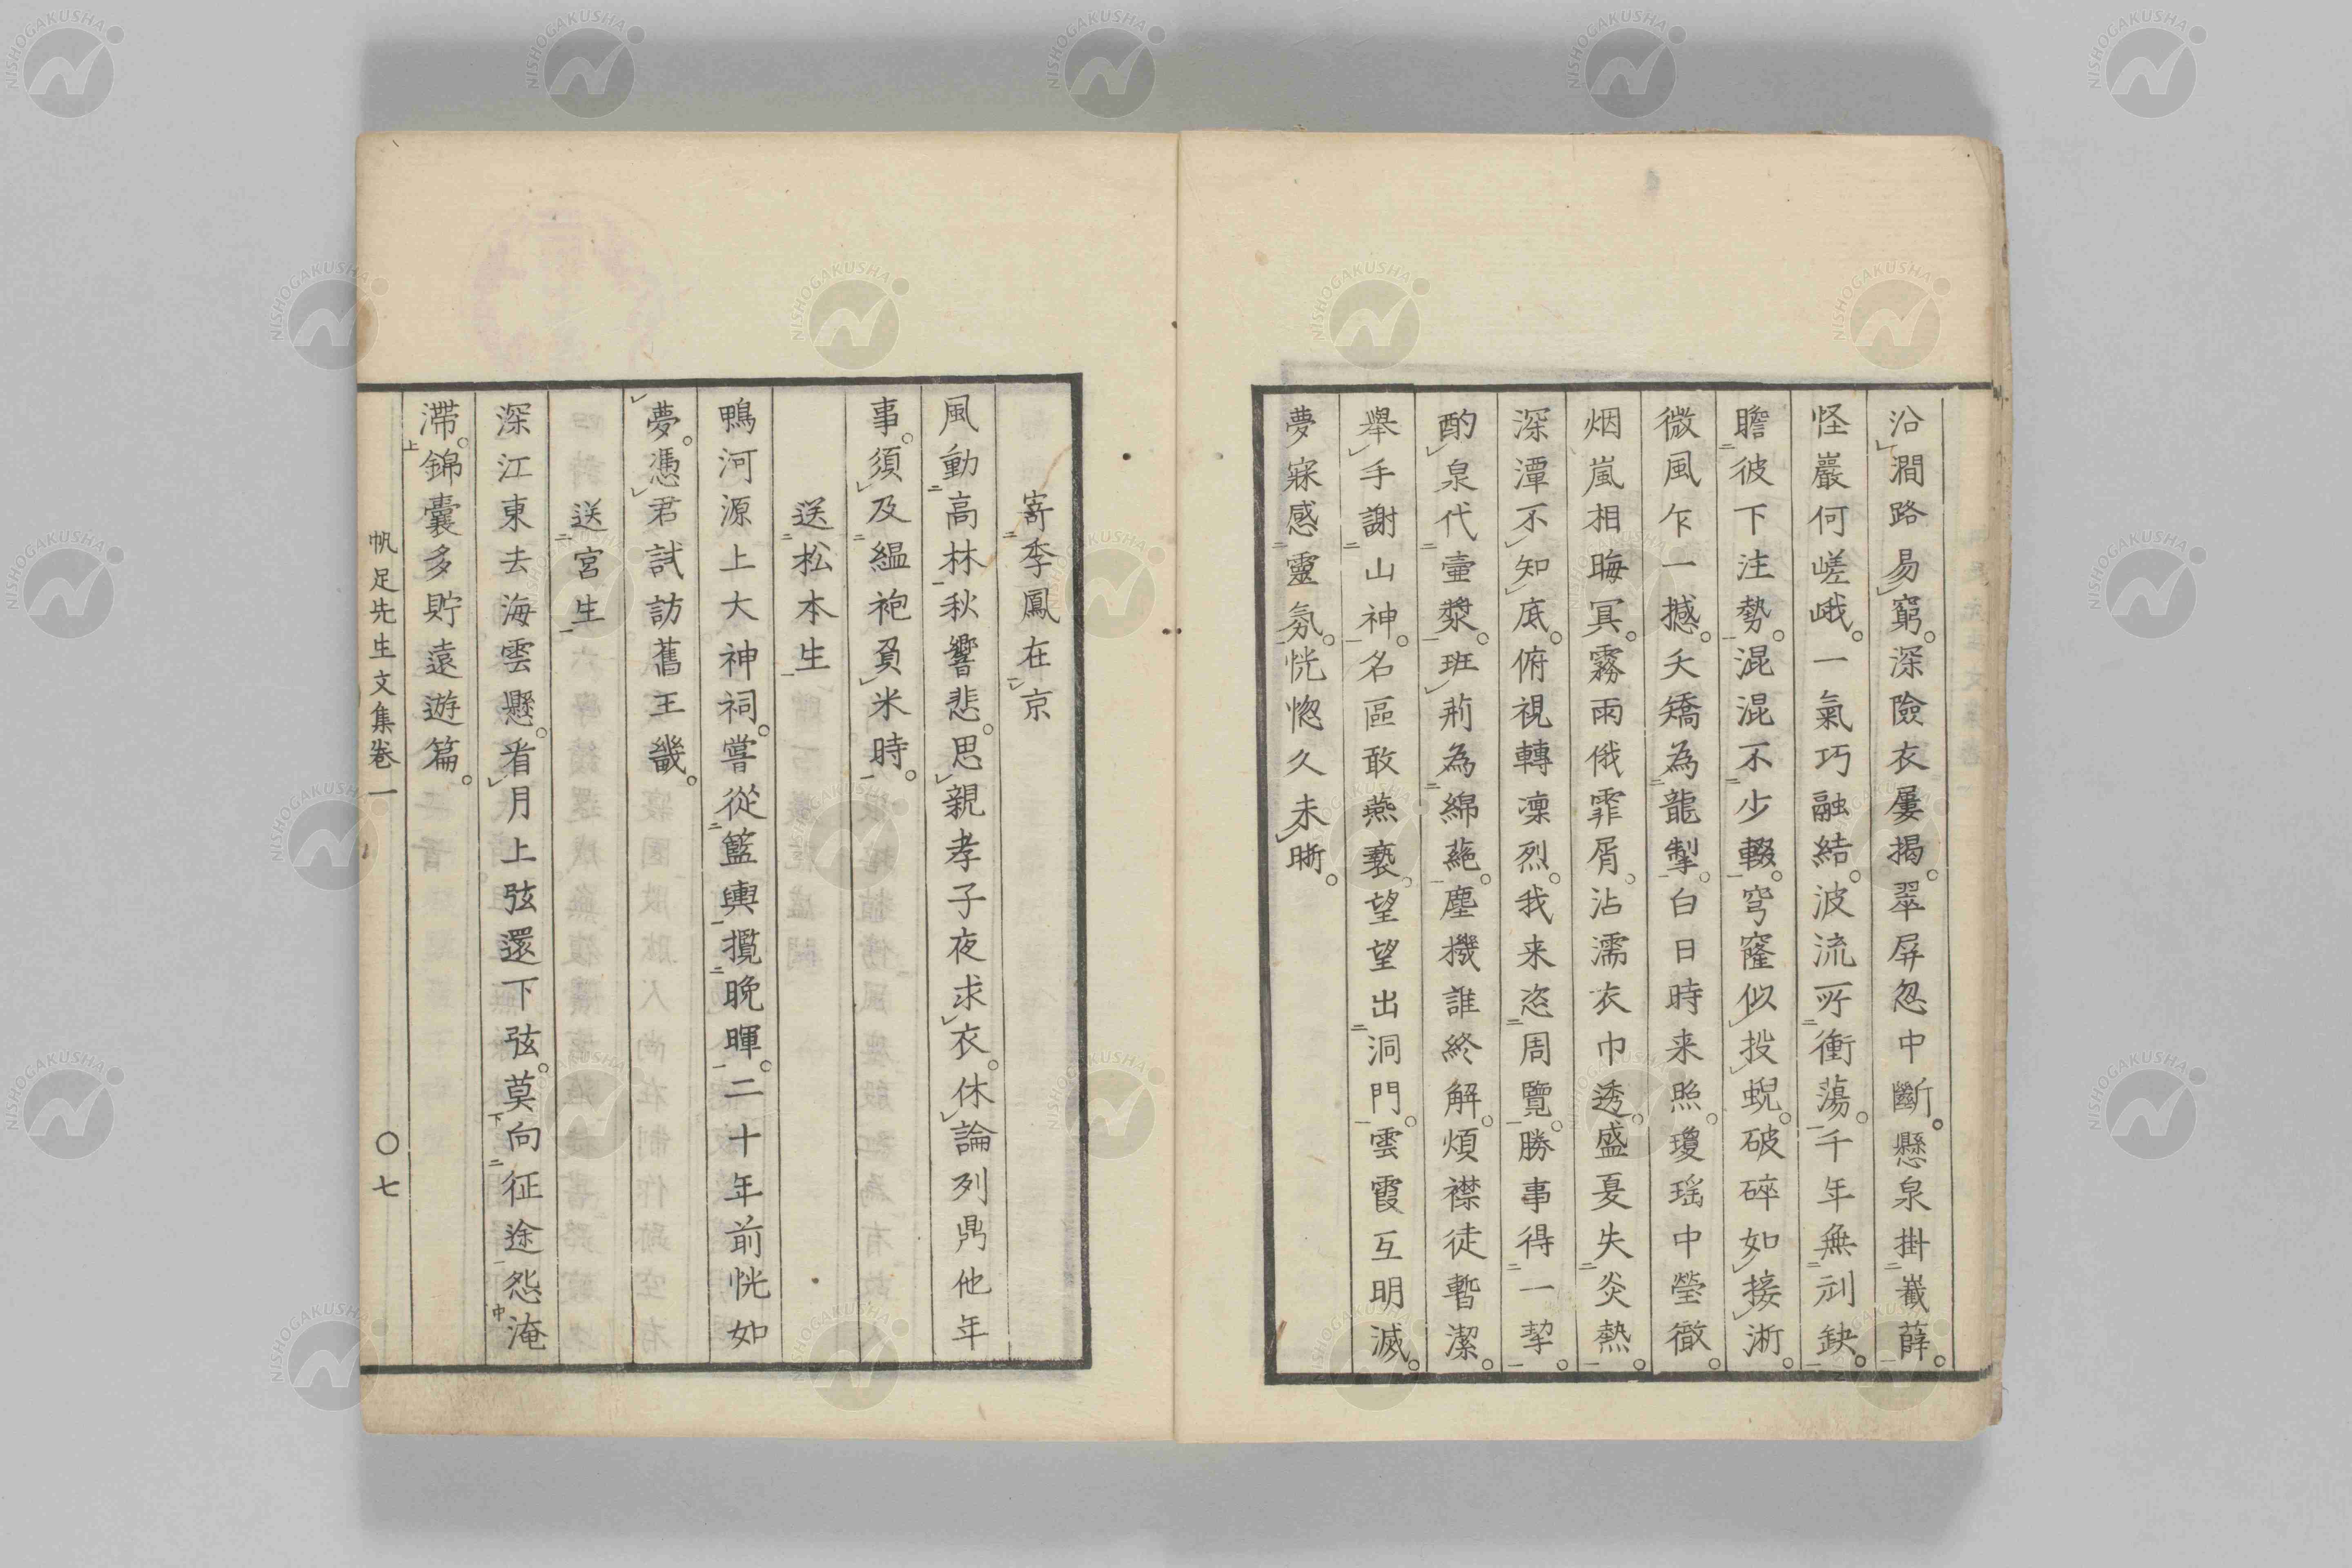 沿澗路易窮。深險衣屢揭。翠屏忽中斷。懸泉掛巀薛。
怪巖何嵯峨。一氣巧融結。波流所衝蕩。千年無刓缺。
瞻彼下注勢。混混不少輟。穹窿似投蜺。破碎如接淅。
微風乍一撼。夭矯為龍掣。白日時来照。瓊瑶中瑩徹。
烟嵐相晦冥。霧雨俄霏屑。沾濡衣巾透。盛夏失炎熱。
深潭不知底。俯視轉凜烈。我来恣周覽。勝事得一挈。
酌泉代壷漿。班荊為綿蕝。塵機誰終解。煩襟徒暫潔。
舉手謝山神。名區敢燕褻。望望出洞門。雲霞互明滅。
夢寐感靈氛。恍惚久未晰。
寄季鳳在京
風動高林秋響悲。思親孝子夜求衣。休論列鼎他年
事。須及縕袍負米時。
送松本生
鴨河源上大神祠。嘗從籃輿攬晚暉。二十年前恍如
夢。憑君試訪舊王畿。
送宮生
深江東去海雲懸。看月上弦還下弦。莫向征途怨淹
滯。錦囊多貯遠遊篇。
帆足先生文集卷一 〇七
NISHOGAKUSHA